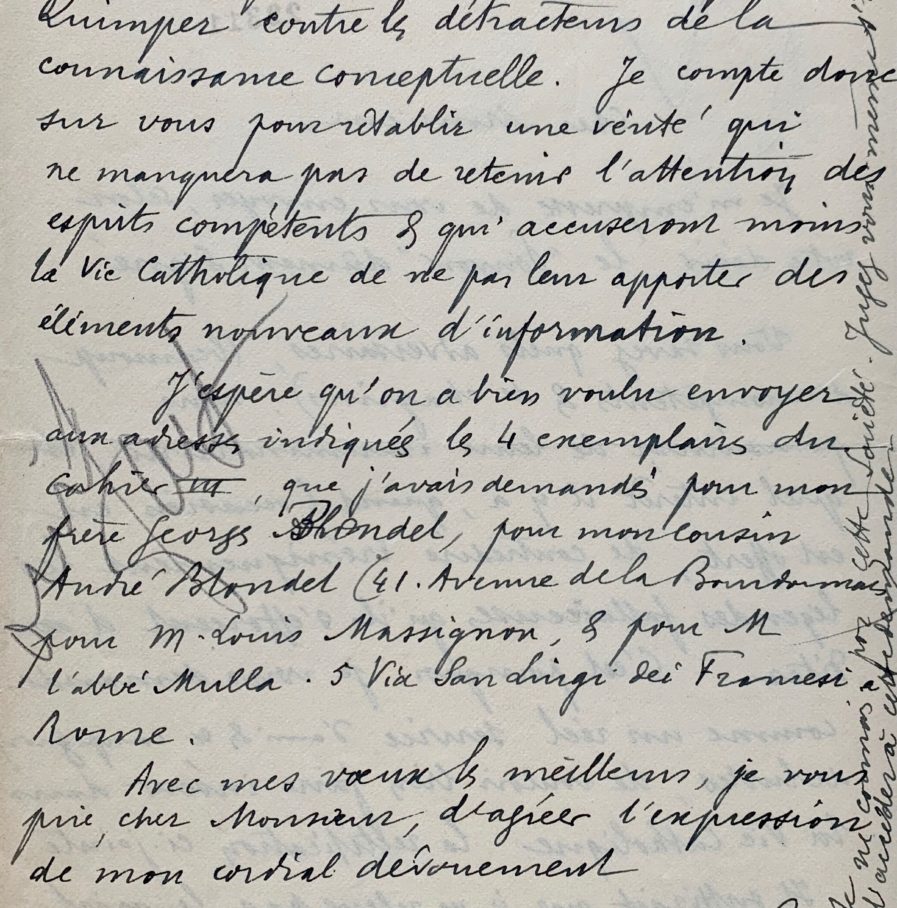 Quimper contre les détracteurs de la
connaissance conceptuelle. Je compte donc
sur vous pour rétablir une vérité qui
ne manquera pas de retenir l'attention des
esprits compétents & qui accuseront moins
la Vie Catholique de ne pas leur apporter des
éléments nouveaux d'information.
J'espère qu'on a bien voulu envoyer
aux adresses indiquées les 4 exemplaires du
Cahier III, que j'avais demandés pour mon
frère Georges Blondel, pour mon cousin
André Blondel (41. Avenue de la Bourdonnais
pour M. Louis Massignon, & pour M
l'abbé Mulla. 5 Via San Luigi dei Francesi
Rome.
Avec mes vœux les meilleurs, je vous
prie, cher Monsieur, d'agréer l'expression
de mon cordial dévouement
Je ne connais pas cette Société. Jugez vous même s'
d'accéder à cette demande.